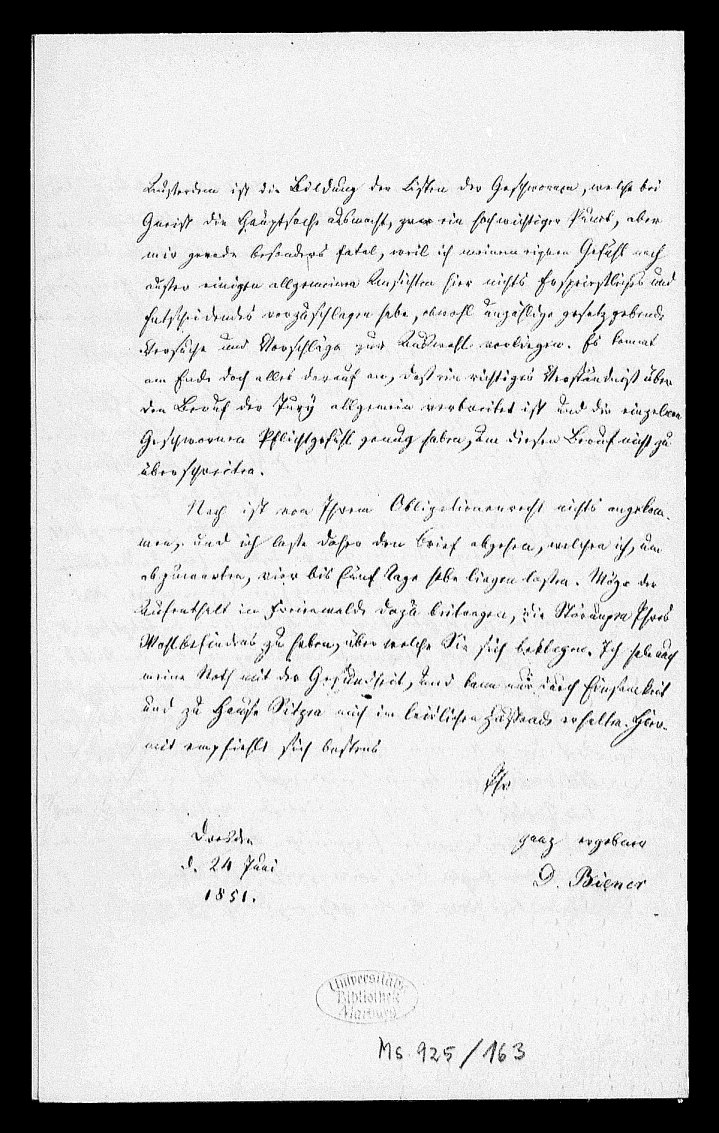 Außerdem ist die Bildung der Listen der Geschwornen, welche bei
Gneist die Hauptsache ausmacht, zwar ein hochwichtiger Punct, aber
mir gerade besonders fatal, weil ich meinem eignen Gefühl nach
außer einigen allgemeinen Ansichten hier nichts Ersprießliches und
Entscheidendes vorzuschlagen habe, obwohl unzählige gesetzgebende
Versuche und Vorschläge zur Auswahl vorliegen. Es kommt
am Ende doch alles darauf an, daß ein richtiges Verständniß über
den Beruf der Jury allgemein verbreitet ist und die einzelnen
Geschwornen Pflichtgefühl genug haben, um diesen Beruf nicht zu
überschreiten.
Noch ist von Ihrem Obligationenrecht nichts angekom-
men, und ich lasse daher den Brief abgehen, welchen ich, um
abzuwarten, vier bis fünf Tage habe liegen lassen. Möge der
Aufenthalt in Freienwalde dazu beitragen, die Störungen Ihres
Wohlbefindens zu heben, über welche Sie sich beklagen. Ich habe auch
meine Noth mit der Gesundheit, und kann nur durch Einsamkeit
und zu Hause Sitzen mich in leidlichem Zustande erhalten. Hier-
mit empfiehlt sich bestens
Ihr
ganz ergebner
D. Biener
Dresden
d. 24 Juni
1851.
Universitäts
Bibliothek
Marburg
Ms 925/163